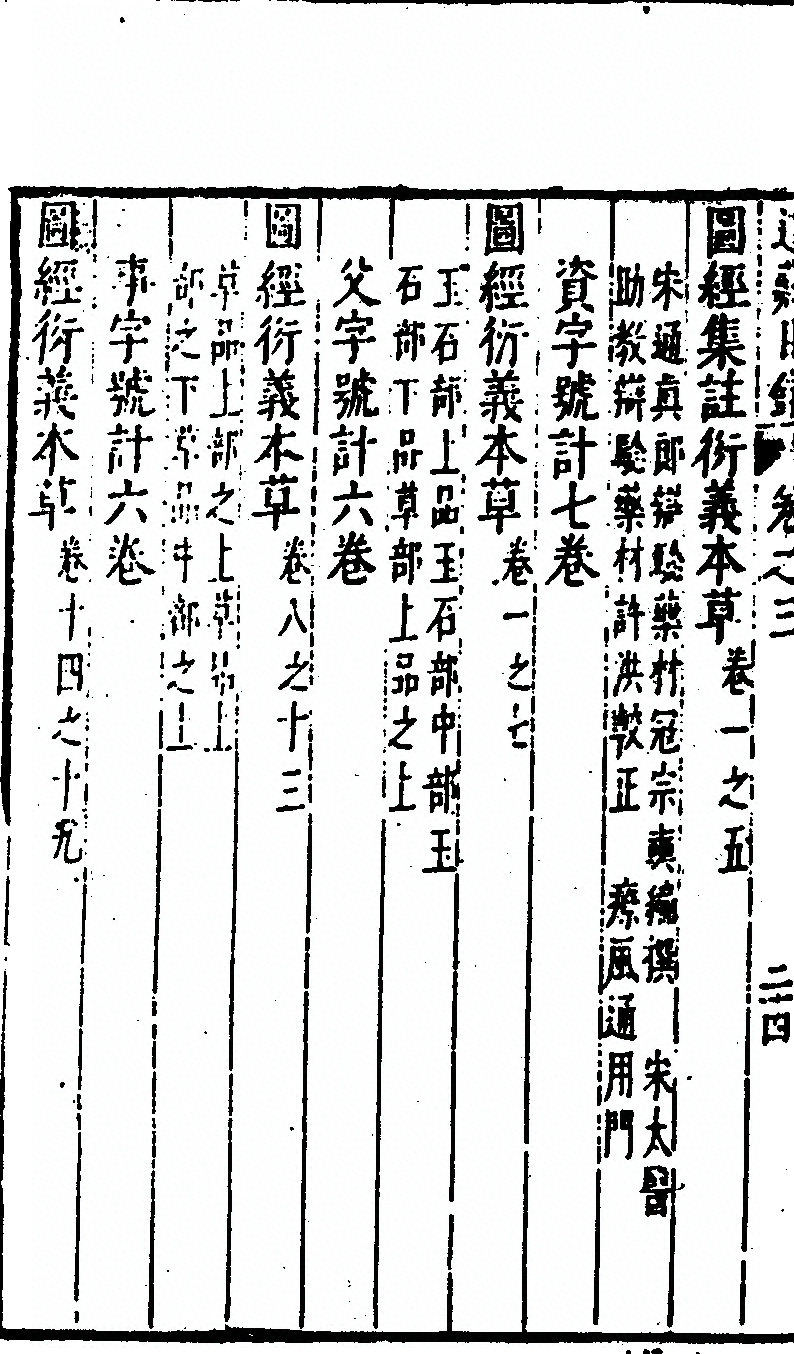 目錄 卷之三 二十四
圖經集註衍義本草 卷一之五
宋通真郎辯驗藥材冦宗奭編撰 宋太醫
助教辯驗藥材許洪斆正 療風通用門
資字號計七卷
圖經衍義本草 卷一之七
玉石部上品玉石部中部玉
石部下品草部上品之上
父字號計六卷
圖經衍義本草 卷八之十三
草品上部之上草品上
部之下草品中部之上
事字號計六卷
圖經衍義本草 卷十四之十九